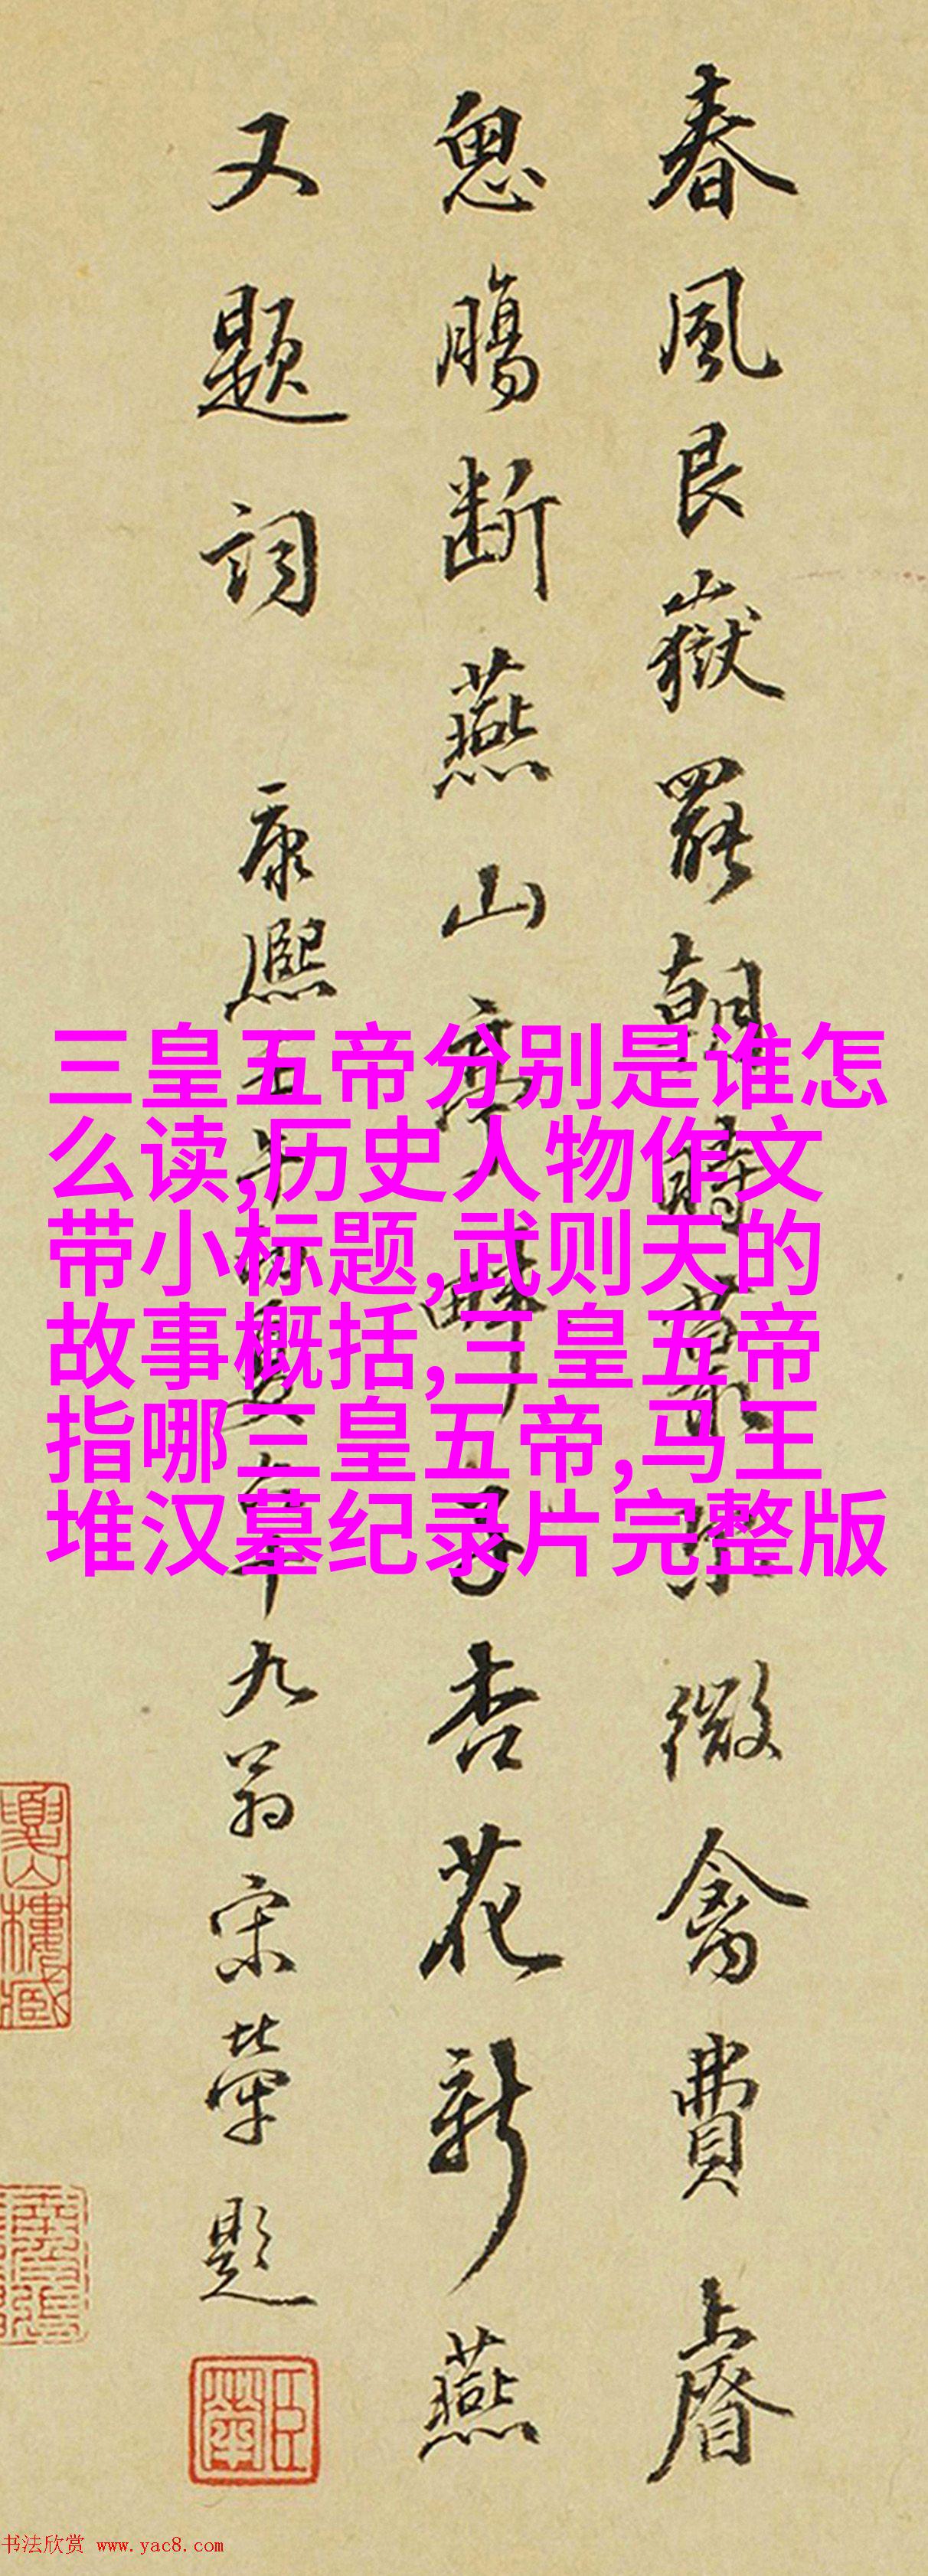 春風艮嶽罷朝時摹寫微禽費上睿
思腸斷燕山亭畔了杏花新燕
又題詞 康熙
九翁宋犖題
三皇五帝分别是谁怎
么读,历史人物作文
带小标题,武则天的
故事概括,三皇五帝
指哪三皇五帝,马王
堆汉墓纪录片完整版
书法欣赏 www.yac8.com